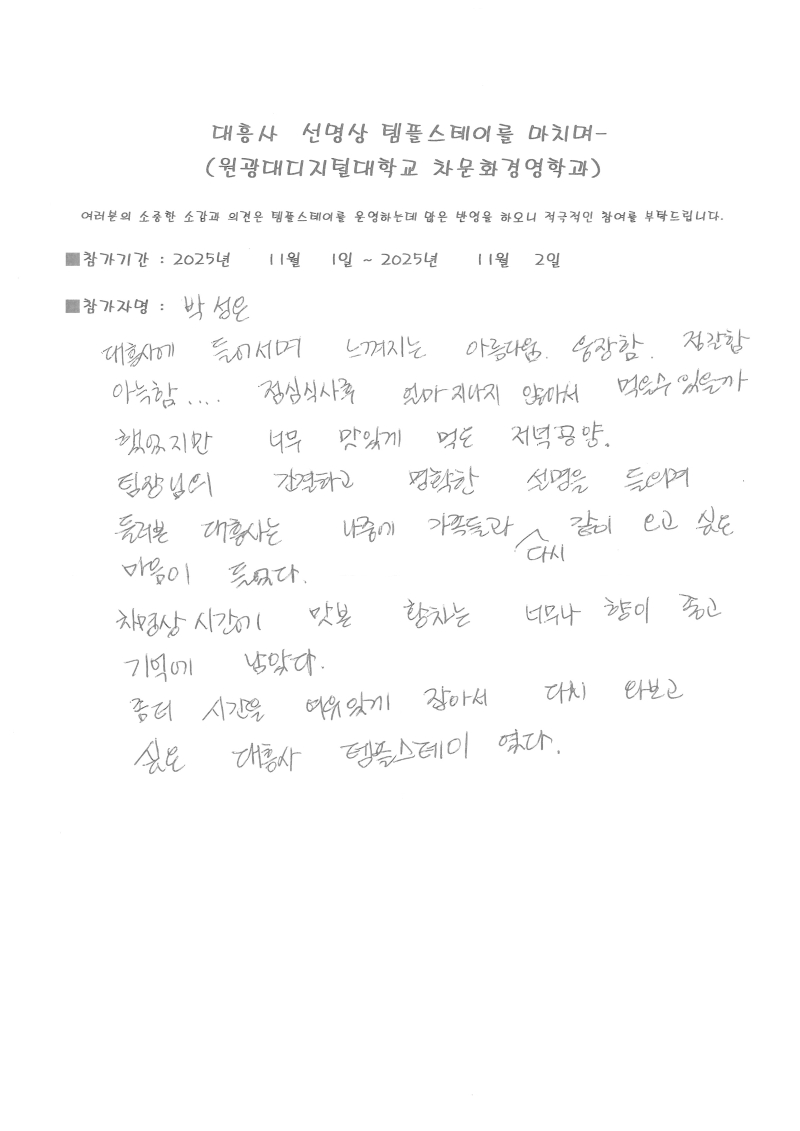 대흥사 선명상 템플스테이를 마치며-
(원광대디지털대학교 차문화경영학과)
여러분의 소중한 소감과 의견은 템플스테이를 운영하는데 많은 반영을 하오니 적극적인 참여를 부탁드립니다.
■참가기간 : 2025년 11월 1일 ~ 2025년 11월 2일
■참가자명 : 박성은
대흥사에 들어서며 느껴지는 아름다움. 웅장함. 정갈함
아늑함.... 점심식사후 얼마 지나지 않아서 먹을수 있을까
했었지만 너무 맛있게 먹은 저녁공양.
팀장님의 간결하고 명확한 설명을 들으며
둘러본 대흥사는 나중에 가족들과 다시 같이 오고 싶은
마음이 들었다.
차명상 시간에 맛본 황차는 너무나 향이 좋고
기억에 남았다.
좀더 시간을 여유있게 잡아서 다시 와보고
싶은 대흥사 템플스테이 였다.